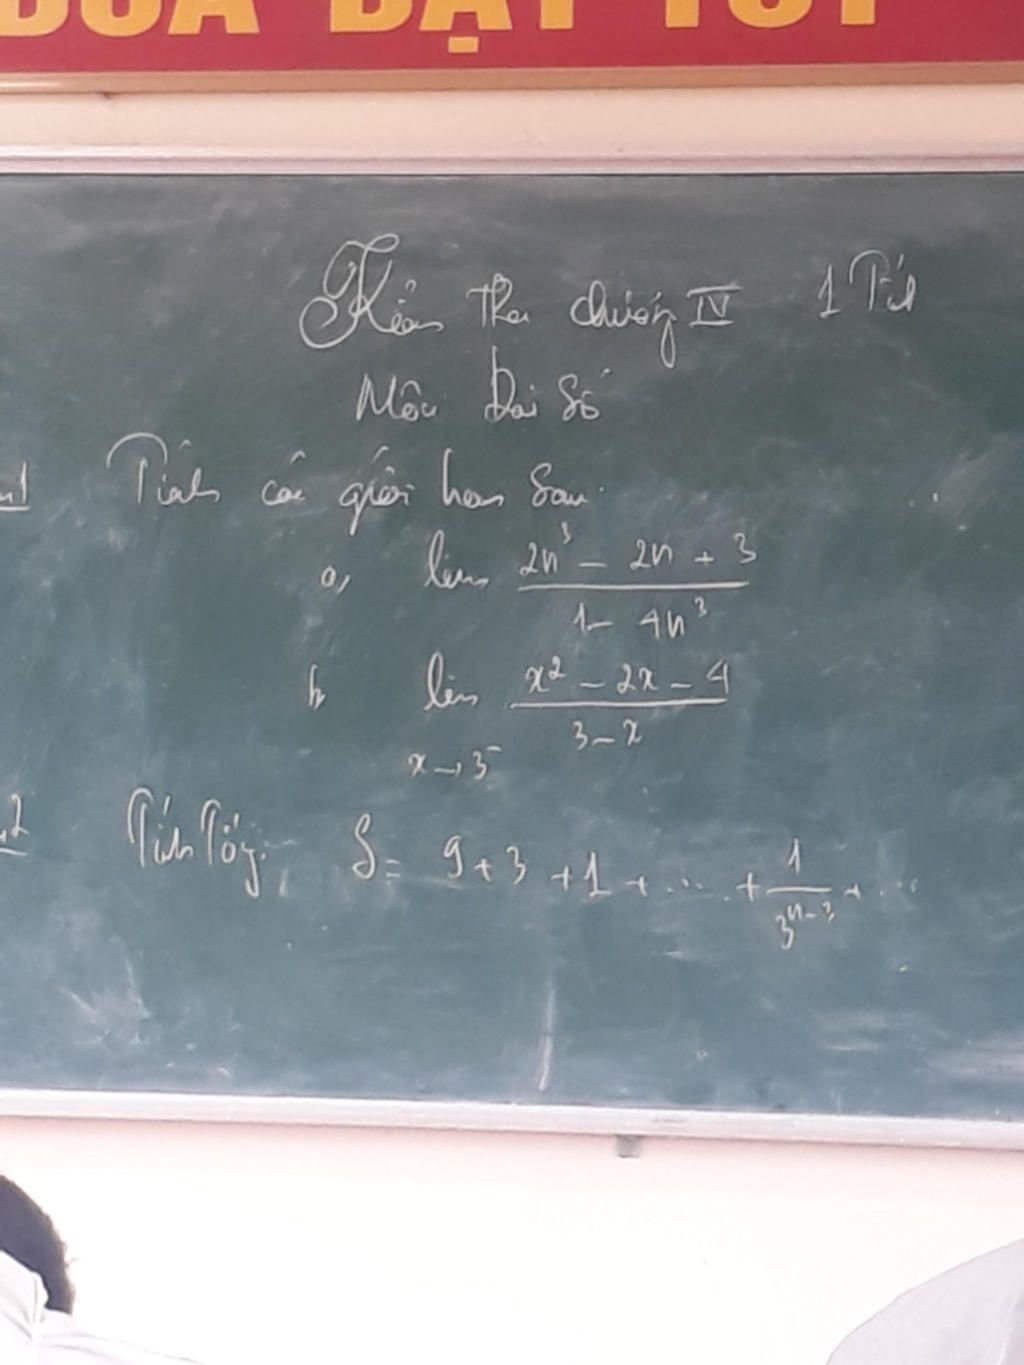 ĐUA DẠY TỐT
Kiểm tra chương IV 1 Tiết
Môn Đại Số
Tính các giới hạn sau.
a, lim (2n³ - 2n + 3)/(1 - 4n³)
b, lim (x² - 2x - 4)/(3 - x)
x → 3⁻
2 Tính Tổng: S = 9 + 3 + 1 + ... + 1/3ⁿ⁻³ + ...